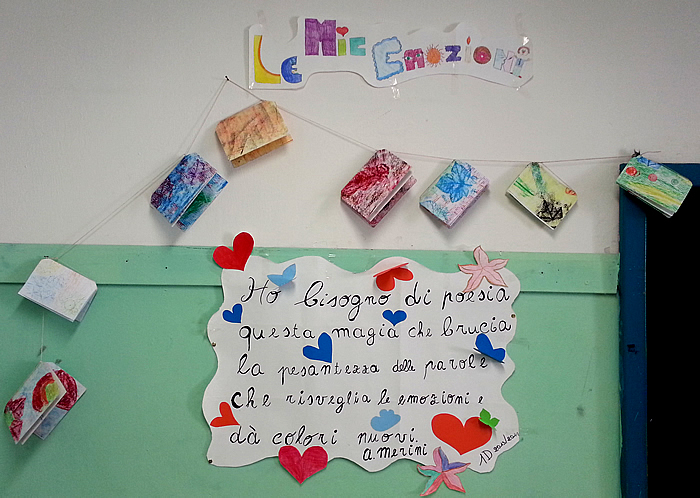 Le Mie Emozioni
Ho bisogno di poesia
questa magia che brucia
la pesantezza delle parole
che risveglia le emozioni e
dà colori nuovi.
a. merini
1D